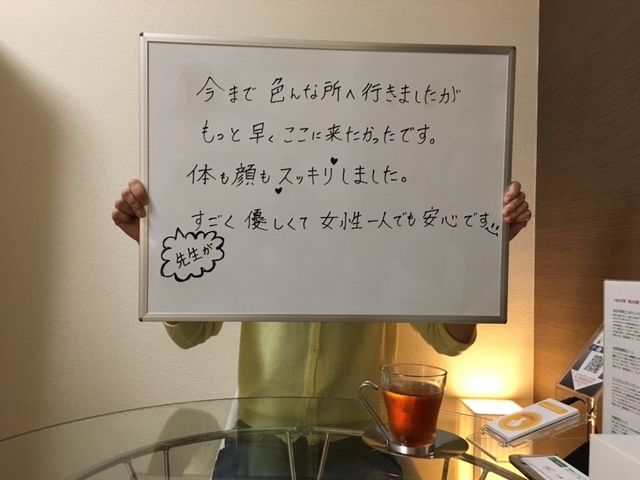 今まで 色んな所へ行きましたが
もっと早くここに来たかったです。
体も顔もスッキリしました。
すごく優しくて 女性一人でも安心です
先生が